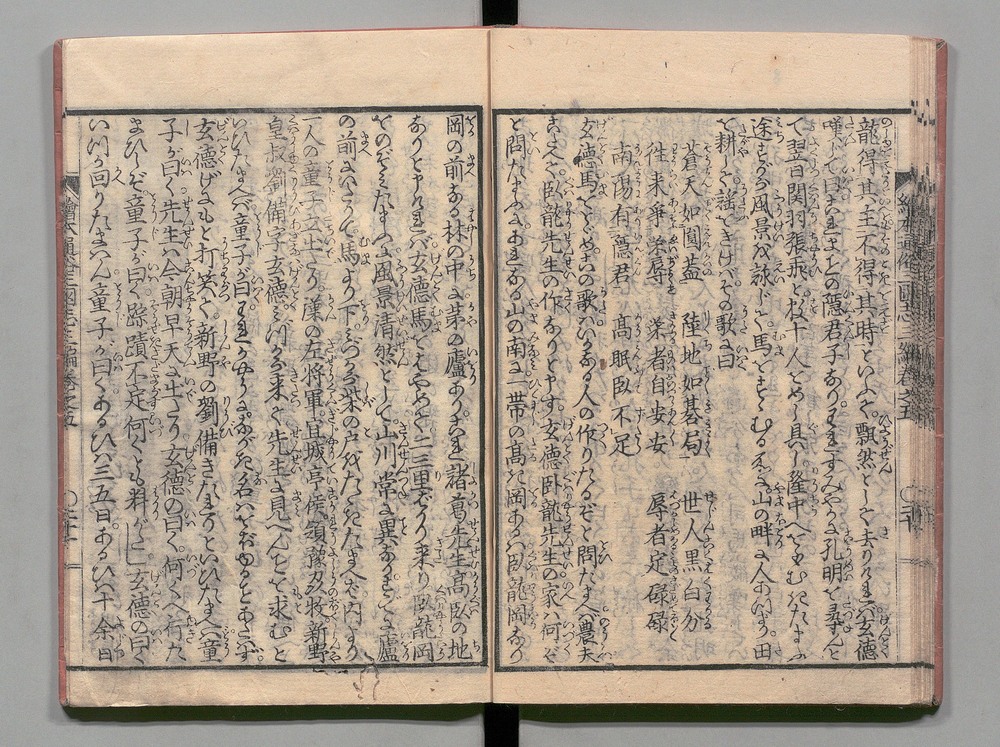 龍得其主不得其時といふて。飄然として去りければ玄徳
嘆じて曰まことの隠君子なりすみやかに孔明を尋んと
て翌日関羽張飛と数十人をめし具し隆中へおもむきたまふ
途すがら風景を詠じて馬をすゝむるに山の畔に人あつまり。田
を耕して謡ふをきけばその歌に曰
蒼天如圓蓋　陸地如碁局　世人黒白分
往来争栄辱　栄者自安安　辱者定碌碌
南陽有隠君　高眠臥不足
玄徳馬をとゞめ此歌はいかなる人の作りたるぞと問たまへば農夫
こたへて。臥龍先生の作なりと申す。玄徳臥龍先生の家は何ぞ
と問たまふに。これなる山の南に一帯の高き岡あるは臥龍岡なり
岡の前なる林の中に茅の廬あり。これ諸葛先生高臥の地
なりと申ければ玄徳馬をはやめて二三里ばかり来り臥龍岡
をのぞみたまへば風景清然として山川常に異なりすでに廬
の前にいたりて。馬より下みづから柴の戸をたゝきたまへば内より
一人の童子立出たり漢の左将軍。宜城亭侯領豫州牧将新野
皇叔劉備字玄徳みづから来て先生に見へんことを求むと
いひたまへば童子が曰われかやうにながき名はおぼゆることあたはず
玄徳げにもと打笑て。新野の劉備きたれりといひたまへば童
子が曰く先生は今朝早天に出たり玄徳の曰く。何くへ行た
まひしぞ。童子が曰く踪蹟不定何くとも料がたし玄徳の曰く
いつか回りたまはん童子が曰くあるひは三五日。あるひは十余日